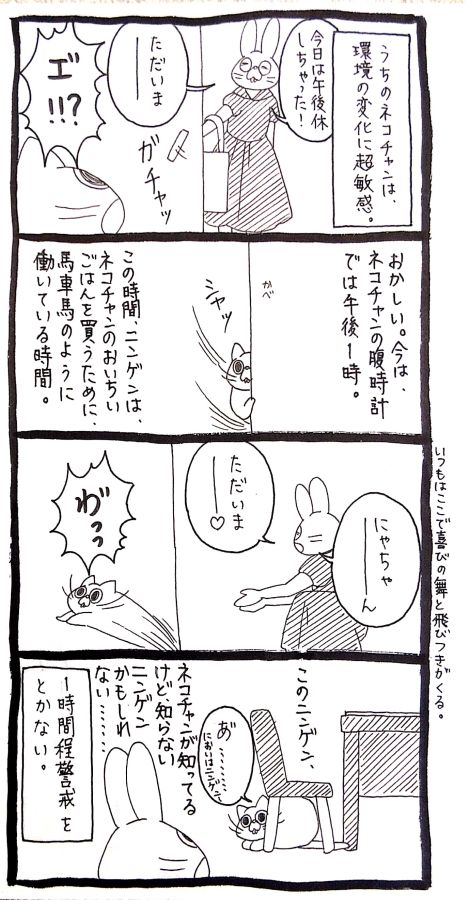 うちのネコチャンは、
環境の変化に超敏感。
今日は午後休
しちゃった！
ただいま
ーー
ガチャッ
ヱ゛
!!?
おかしい。今は、
ネコチャンの腹時計
では午後１時。
かべ
シャッ
この時間、ニンゲンは、
ネコチャンのおいちい
ごはんを買うために、
馬車馬のように
働いている時間。
いつもはここで喜びの舞と飛びつきがくる。
にゃちゃ
ーーん
ただいま
ーー♡
わ゛っっ
このニンゲン、
あ゛………
においはニンゲン…
ネコチャンが知ってる
けど、知らない
ニンゲン
かもしれ
ない……
１時間程警戒を
とかない。